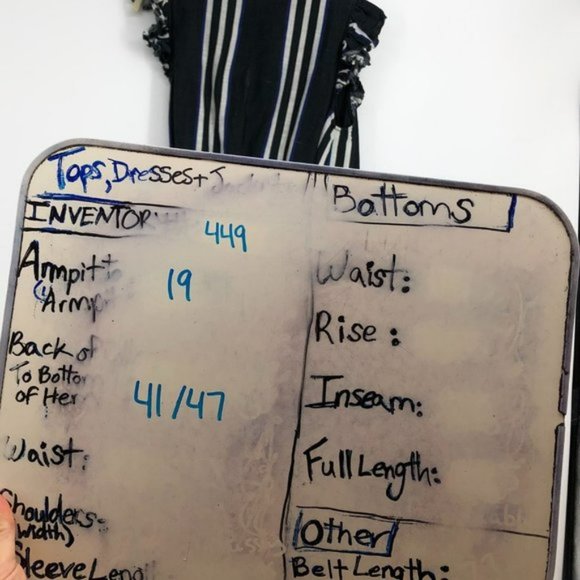 Tops, Dresses + J
INVENTOR
449
Armpit
Armp
19
Back of
To Botto
of Hem
41/47
Waist:
Shoulders
(width)
Sleeve Leng
Bottoms
Waist:
Rise :
Inseam:
Full Length:
Other
Belt Length: